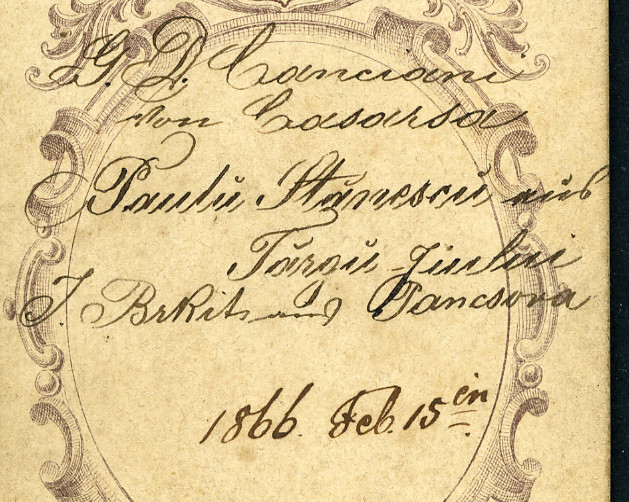 G. D. Canciani
von Casarsa
Paulŭ Stănescŭ aus
Târgŭ Jiului
J. Brkits aus Pancsova
1866. Feb. 15 ein